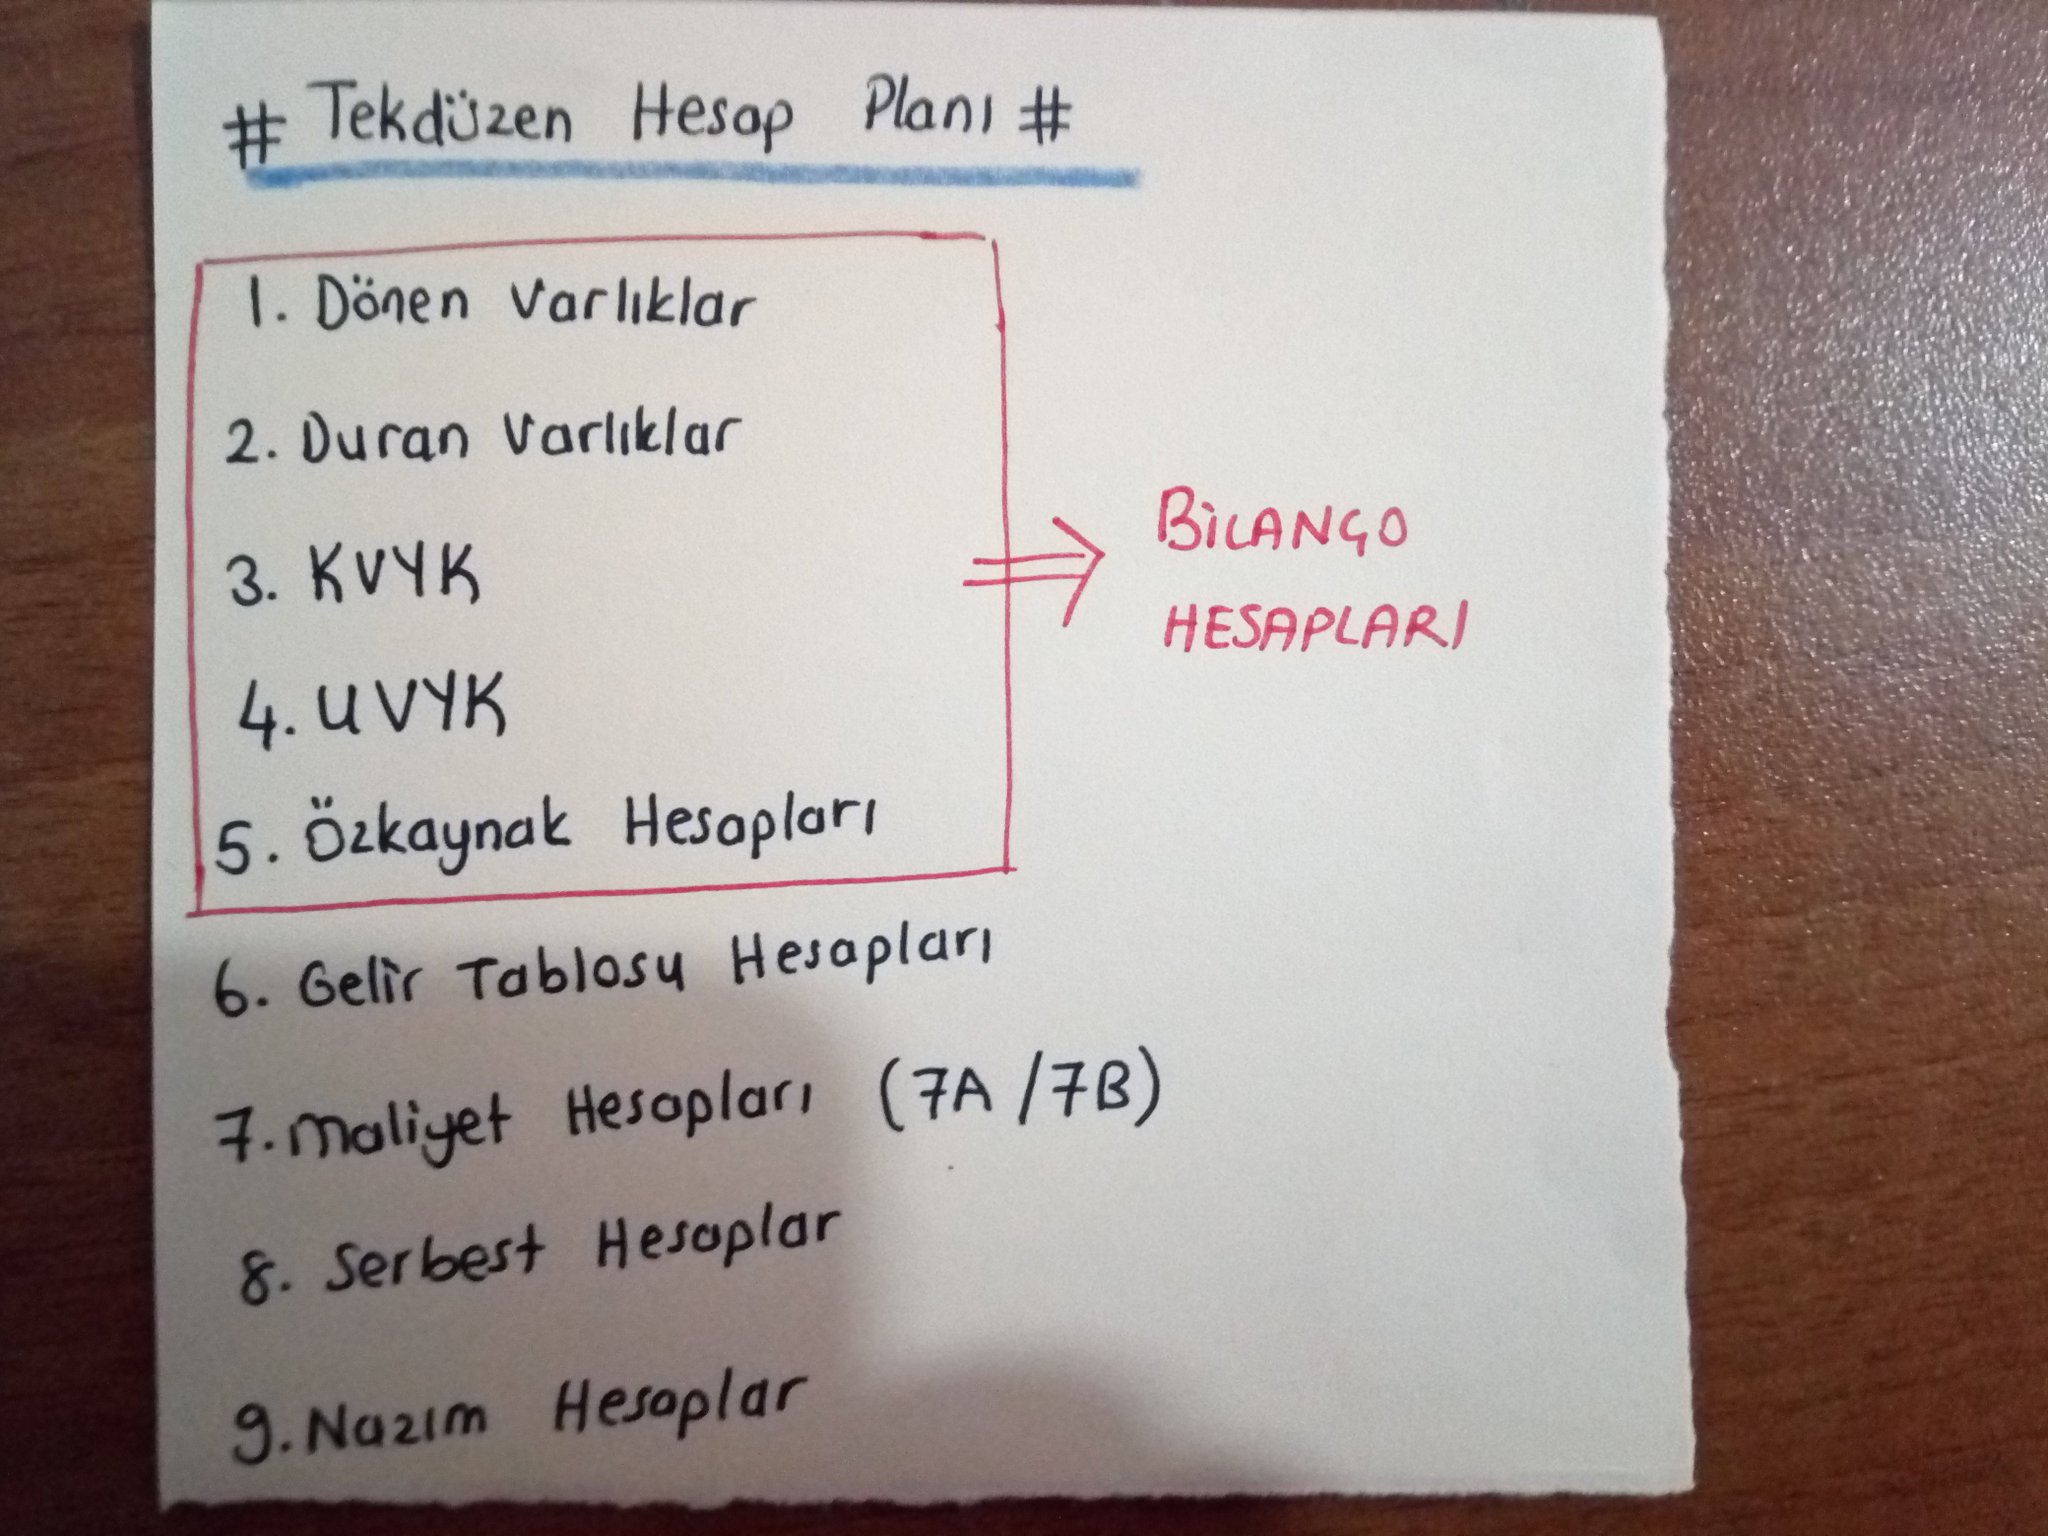 # Tekdüzen Hesap Planı #
1. Dönen Varlıklar
2. Duran Varlıklar
3. KVYK
4. UVYK
5. Özkaynak Hesapları
BİLANÇO
HESAPLARI
6. Gelir Tablosu Hesapları
7. Maliyet Hesapları (7A/7B)
8. Serbest Hesaplar
9. Nazım Hesaplar